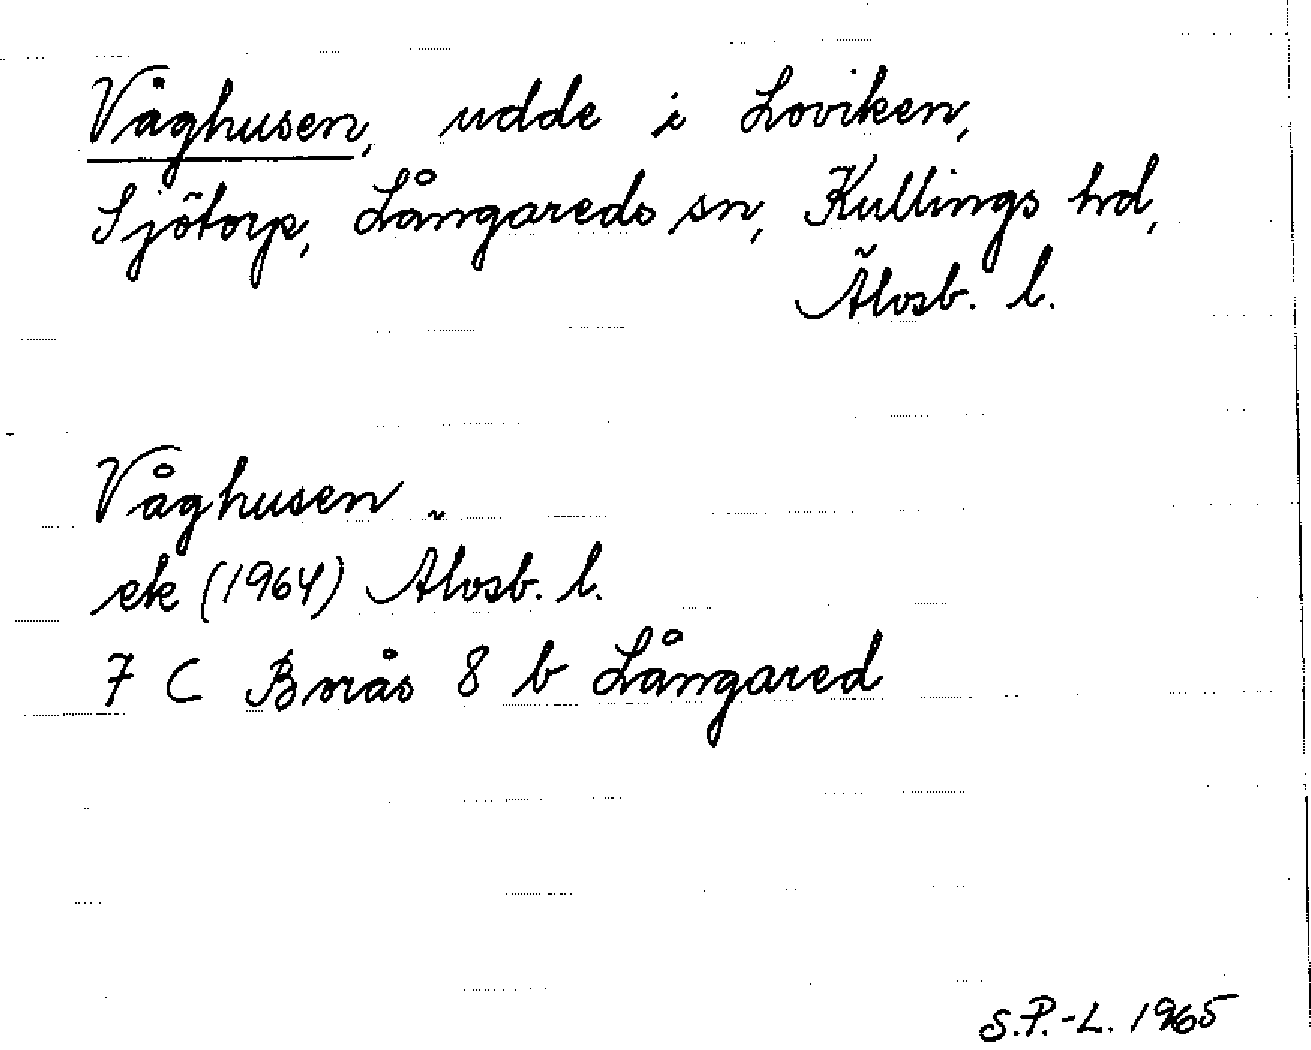 Våghusen, udde i Loviken,
Sjötorp, Långareds sn, Kullings hd,
Älvsb. l.
Våghusen
ek (1964) Älvsb. l.
7 C Borås 8 b Långared
S.P.-L. 1965